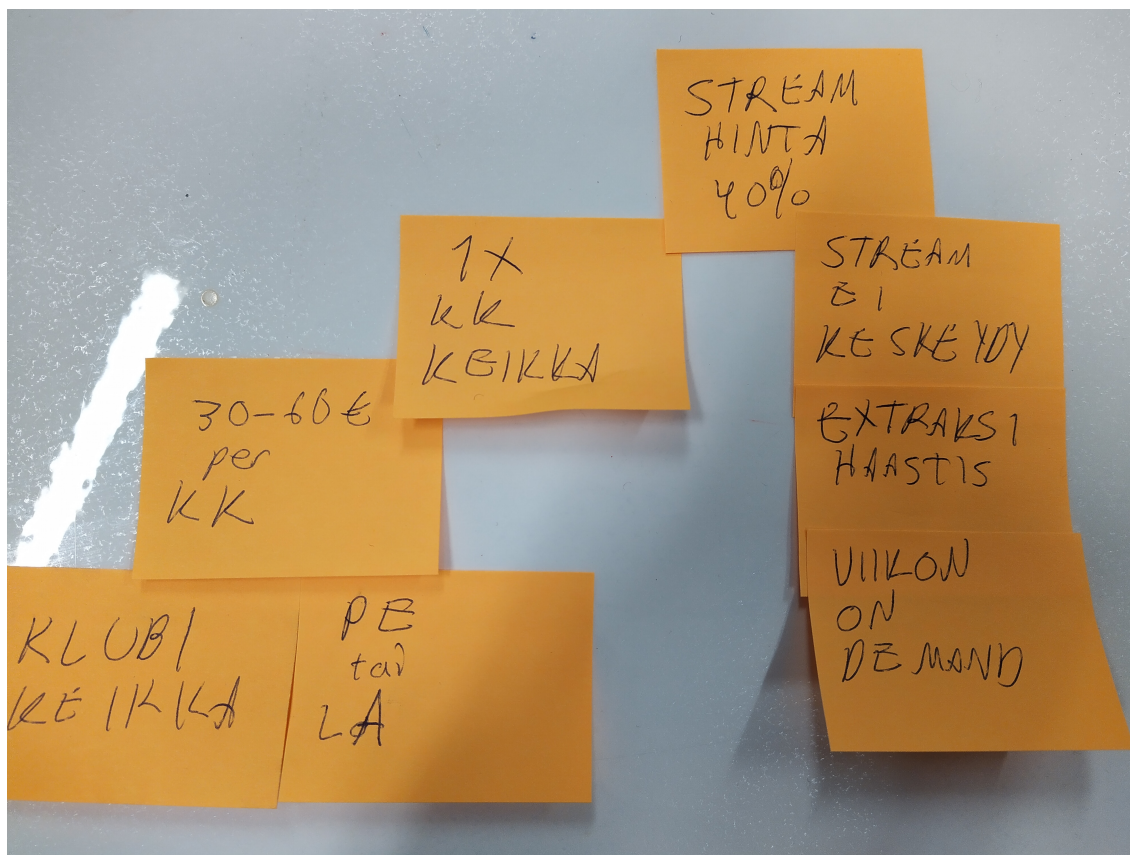 STREAM
HINTA
40%
1X
KK
KEIKKA
STREAM
EI
KESKEYDY
30-60€
per
KK
EXTRAKSI
HAASTIS
VIIKON
ON
DEMAND
KLUBI
KEIKKA
PE
tai
LA